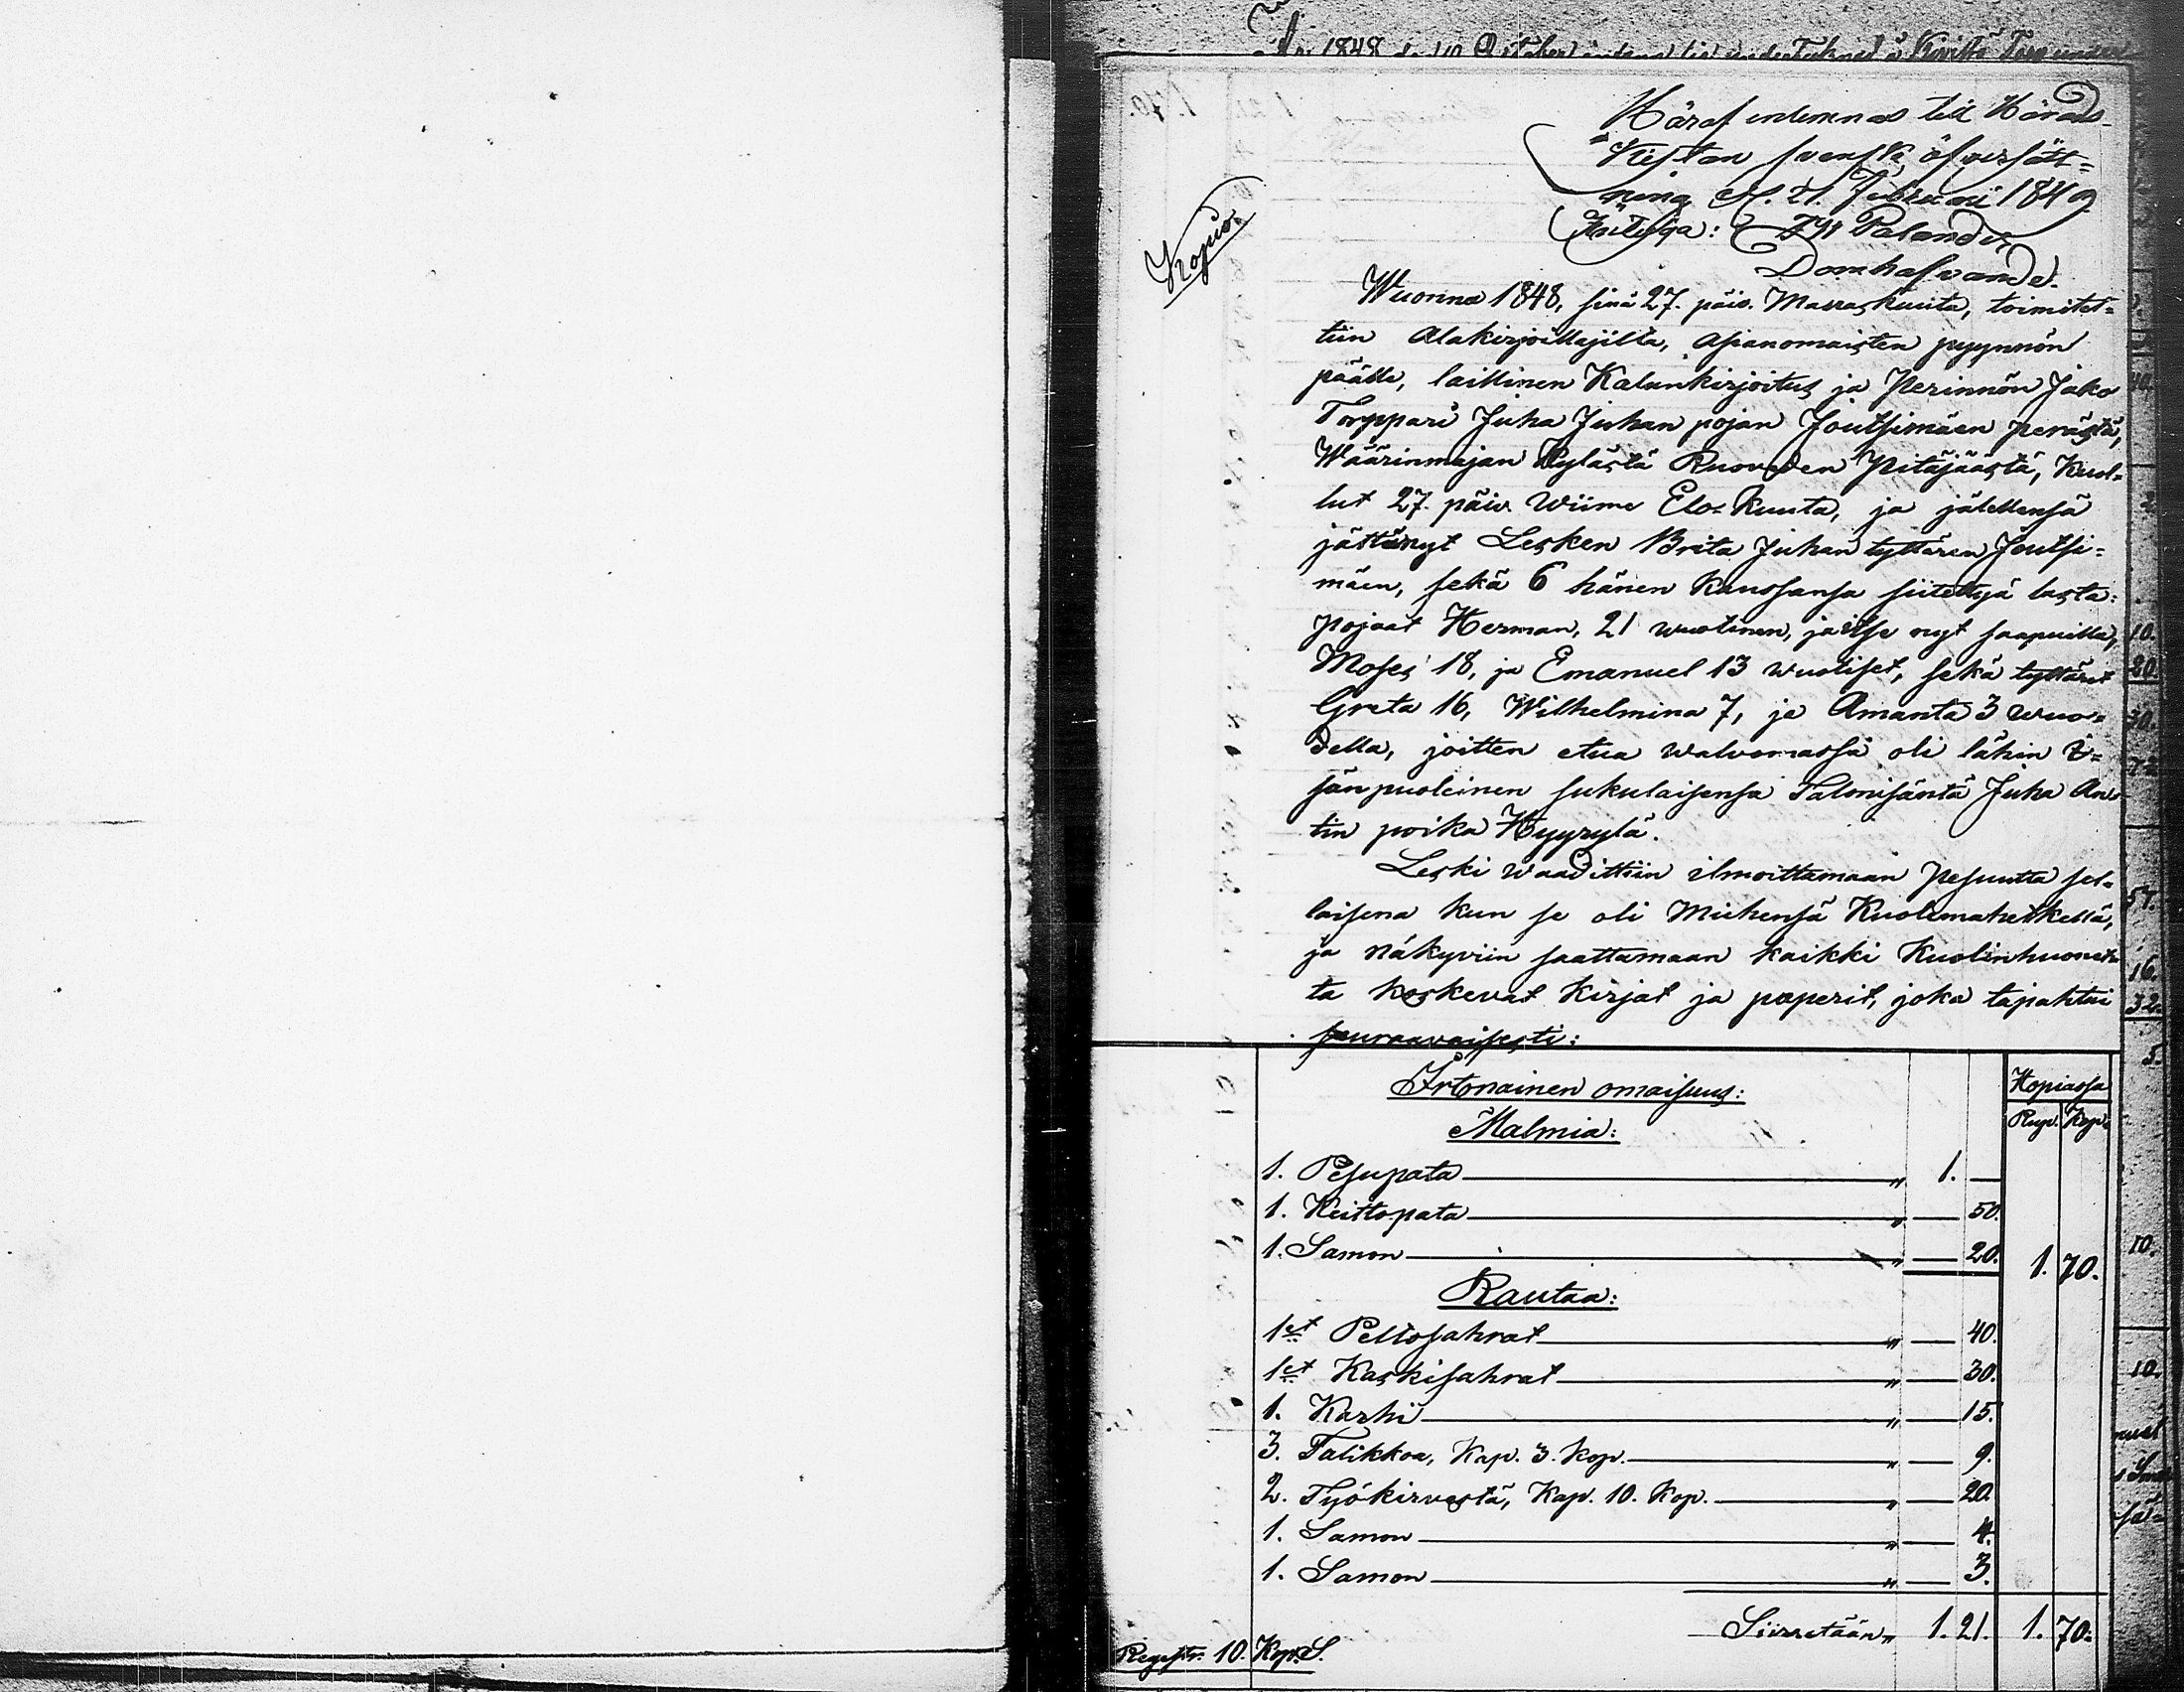 År 1848 den 10 October
Häraf inlemnas till Härads
Kistan svensk öfversätt=
ning d. 21. Februari 1849
Palander
Domhafvande.
Kopia.
Wuonna 1848, sinä 27. päiv. Marraskuuta, toimitet=
tiin Alakirjoittajilta, Asianomaisten pyynnön
päälle, laillinen Kalunkirjoitus ja Perinnön Jako
Torppari Juha Juhan pojan Joutsimäen perästä,
Wäärinmajan Kylästä Ruoveden Pitäjäästä, Kuol=
lut 27. päiv. Wiime Elo=Kuuta, ja jälellensä
jättänyt Lesken Brita Juhan tyttären Joutsi=
mäen, sekä 6 hänen Kanssansa siitettyä lasta:
Pojaat Herman, 21 wuotinen, ja itse nyt saapuilla,
Moses 18, ja Emanuel 13 wuotiset, sekä tyttäret
Greta 16, Wilhelmina 7, ja Amanta 3 wuo=
della, joitten etua walvomassa oli lähin i=
sän puoleinen sukulaisensa Talonisäntä Juha An=
tin poika Hyyrylä.
Leski waadittiin ilmoittamaan Pesuutta sel=
laisena kun se oli Miehensä Kuolemahetkellä,
ja Näkyviin saattamaan kaikki Kuolinhuonet=
ta koskevat Kirjat ja paperit, joka tapahtui
seuraavaisesti:
Irtonainen omaisuus:
Hopiassa
Malmia:
Rup. Kop.
1. Pesupata " 1. —
1. Keittopata " — 50.
1. Samon " — 20. 1. 70.
Rautaa:
1et Peltosahrat " — 40.
1et Kaskisahrat " — 30.
1. Karhi " — 15.
3. Talikkoa, Kap. 3. Kop. " — 9.
2. Työkirvestä, Kap. 10. Kop. " — 20.
1. Samon " — 4.
1. Samon " — 3.
Siirretään " 1. 21. 1. 70.
Registr. 10. Kop. S.